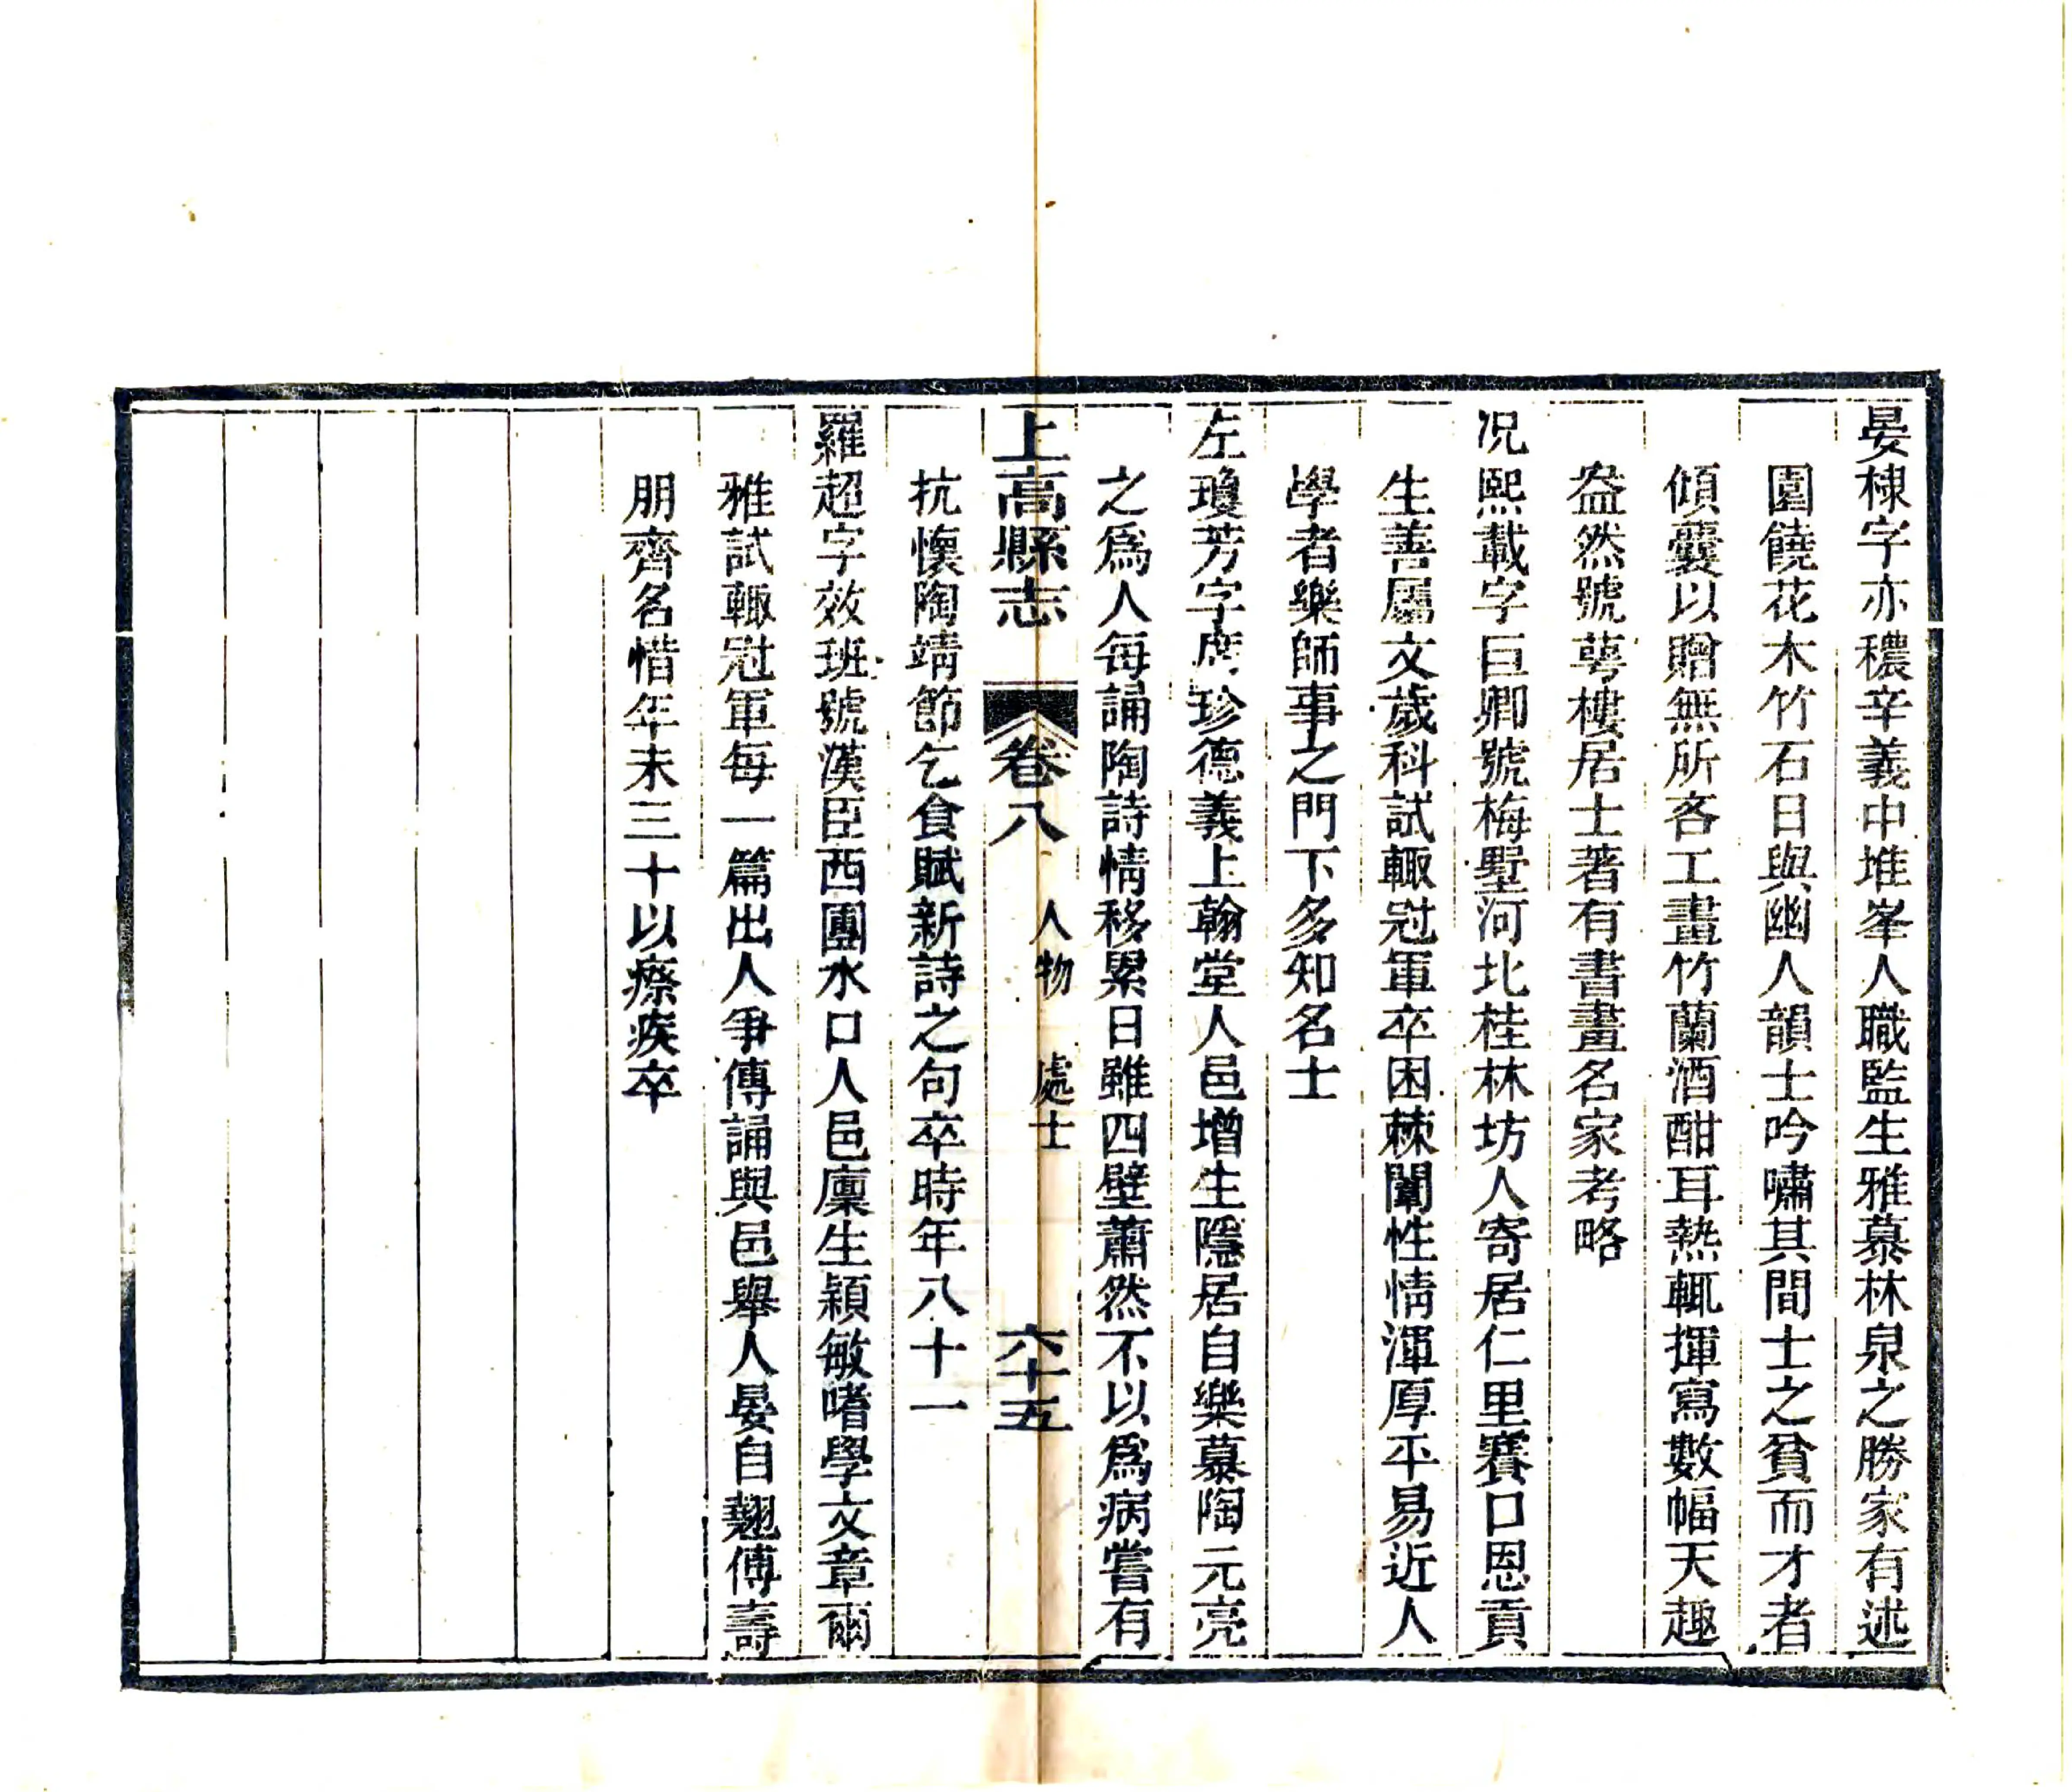 晏棣字亦穠辛義中堆峯人職監生雅慕林泉之勝家有述
園饒花木竹石日與幽人韻士吟嘯其間士之貧而才者
傾囊以贈無所吝工畫竹蘭酒酣耳熱輒揮寫數幅天趣
盎然號萼樓居士著有書畫名家考略
况熙載字巨卿號梅墅河北桂林坊人寄居仁里賽口恩貢
生善屬文歲科試輙冠軍卒困棘闈性情渾厚平易近人
學者樂師事之門下多知名士
左瓊芳字席珍德義上翰堂人邑增生隱居自樂慕陶元亮
之爲人每誦陶詩情移累日雖四壁蕭然不以爲病嘗有
上高縣志 卷八 人物 處士 六十五
抗懷陶靖節乞食賦新詩之句卒時年八十一
羅超字效班號漢臣西團水口人邑廩生穎敏嗜學文章爾
雅試輙冠軍每一篇出人爭傳誦與邑舉人晏自翹傅壽
朋齊名惜年未三十以瘵疾卒